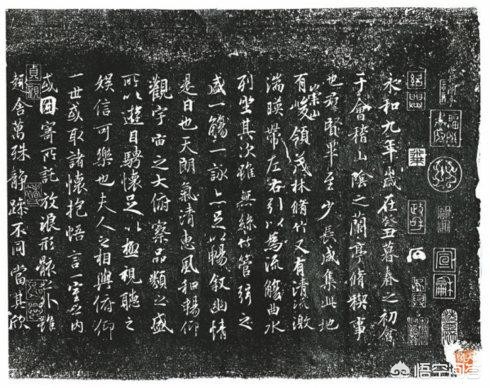 永和九年歲在癸丑暮春之初會
于會稽山陰之蘭亭脩稧事
也羣賢畢至少長咸集此地
有崇山峻領茂林脩竹又有清流激
湍暎帶左右引以為流觴曲水
列坐其次雖無絲竹管弦之
盛一觴一詠亦足以暢敘幽情
是日也天朗氣清惠風和暢仰
觀宇宙之大俯察品類之盛
所以遊目騁懷足以極視聽之
娛信可樂也夫人之相與俯仰
一世或取諸懷抱悟言一室之內
或因寄所託放浪形骸之外雖
趣舍萬殊靜躁不同當其欣
貞觀
悟空